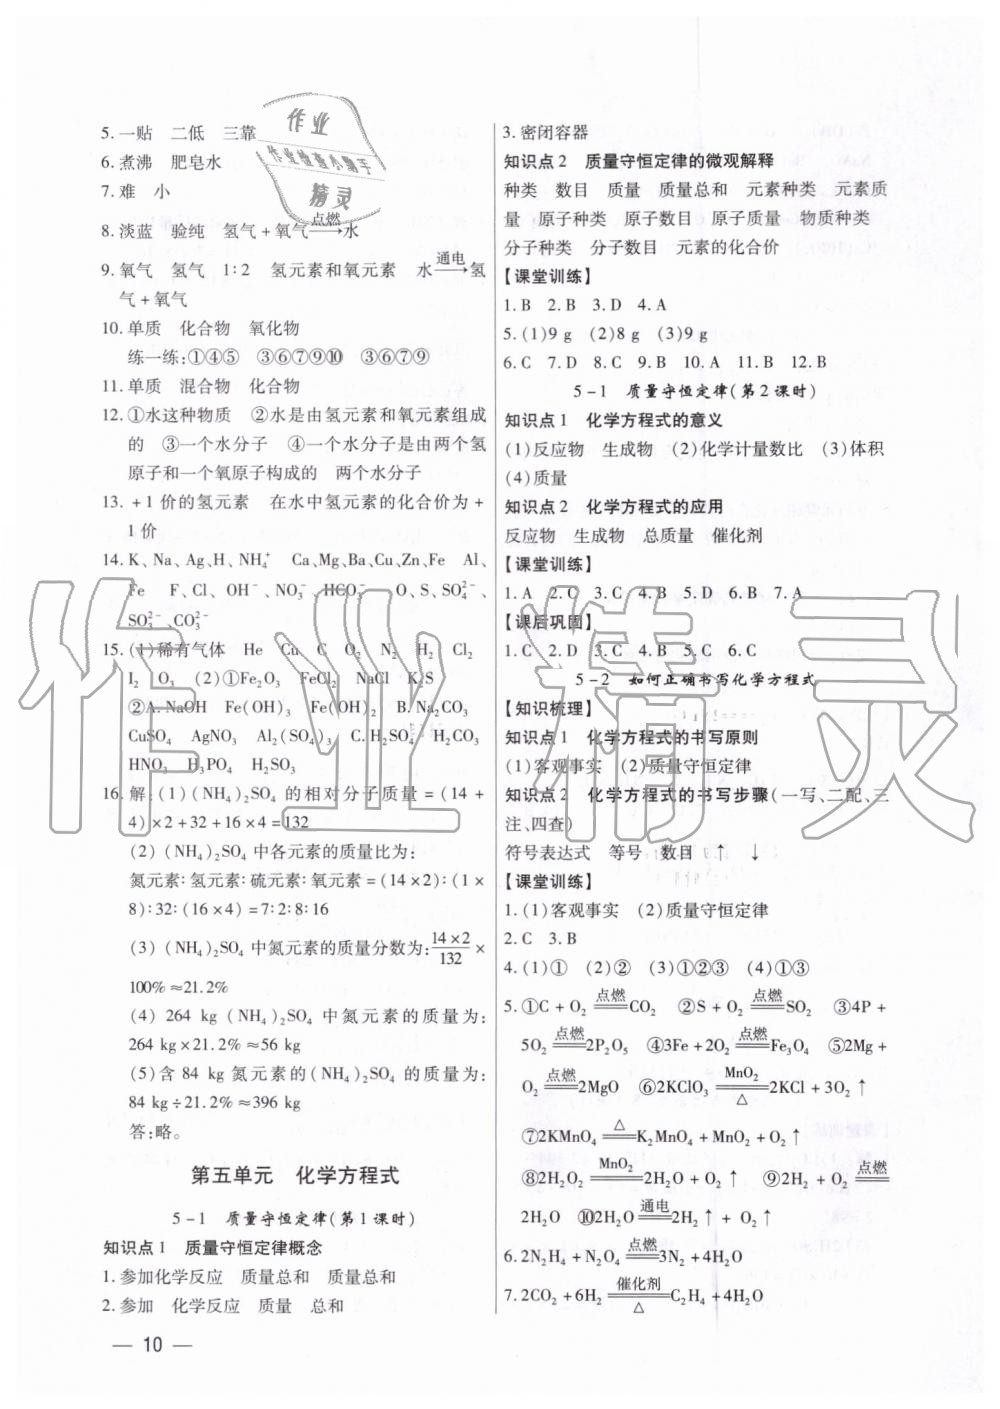 5. 一贴 二低 三靠
6. 煮沸 肥皂水
7. 难 小
8. 淡蓝 验纯 氢气+氧气 —点燃→ 水
9. 氧气 氢气 1∶2 氢元素和氧元素 水 —通电→ 氢
气+氧气
10. 单质 化合物 氧化物
练一练:①④⑤ ③⑥⑦⑨⑩ ③⑥⑦⑨
11. 单质 混合物 化合物
12. ①水这种物质 ②水是由氢元素和氧元素组成
的 ③一个水分子 ④一个水分子是由两个氢
原子和一个氧原子构成的 两个水分子
13. +1价的氢元素 在水中氢元素的化合价为+
1价
14. K、Na、Ag、H、NH₄⁺ Ca、Mg、Ba、Cu、Zn、Fe Al、
Fe F、Cl、OH⁻、NO₃⁻、HCO₃⁻ O、S、SO₄²⁻、
SO₃²⁻、CO₃²⁻
15. (1)稀有气体 He Cu C O₂ N₂ H₂ Cl₂
I₂ O₃ (2)①Fe₂O₃ FeCl₂ NaCl K₂S
②A. NaOH Fe(OH)₃ Fe(OH)₂ B. Na₂CO₃
CuSO₄ AgNO₃ Al₂(SO₄)₃ C. H₂SO₄ H₂CO₃
HNO₃ H₃PO₄ H₂SO₃
16. 解:(1)(NH₄)₂SO₄ 的相对分子质量=(14+
4)×2+32+16×4=132
(2)(NH₄)₂SO₄ 中各元素的质量比为:
氮元素∶氢元素∶硫元素∶氧元素=(14×2)∶(1×
8)∶32∶(16×4)=7∶2∶8∶16
(3)(NH₄)₂SO₄ 中氮元素的质量分数为:14×2/132×
100%≈21.2%
(4)264 kg (NH₄)₂SO₄ 中氮元素的质量为:
264 kg×21.2%≈56 kg
(5)含 84 kg 氮元素的(NH₄)₂SO₄ 的质量为:
84 kg÷21.2%≈396 kg
答:略。
第五单元 化学方程式
5-1 质量守恒定律(第1课时)
知识点1 质量守恒定律概念
1. 参加化学反应 质量总和 质量总和
2. 参加 化学反应 质量 总和
3. 密闭容器
知识点2 质量守恒定律的微观解释
种类 数目 质量 质量总和 元素种类 元素质
量 原子种类 原子数目 原子质量 物质种类
分子种类 分子数目 元素的化合价
【课堂训练】
1. B 2. B 3. D 4. A
5. (1)9 g (2)8 g (3)9 g
6. C 7. D 8. C 9. B 10. A 11. B 12. B
5-1 质量守恒定律(第2课时)
知识点1 化学方程式的意义
(1)反应物 生成物 (2)化学计量数比 (3)体积
(4)质量
知识点2 化学方程式的应用
反应物 生成物 总质量 催化剂
【课堂训练】
1. A 2. C 3. C 4. B 5. D 6. B 7. A
【课后巩固】
1. C 2. D 3. C 4. B 5. C 6. C
5-2 如何正确书写化学方程式
【知识梳理】
知识点1 化学方程式的书写原则
(1)客观事实 (2)质量守恒定律
知识点2 化学方程式的书写步骤(一写、二配、三
注、四查)
符号表达式 等号 数目 ↑ ↓
【课堂训练】
1. (1)客观事实 (2)质量守恒定律
2. C 3. B
4. (1)① (2)② (3)①②③ (4)①③
5. ①C+O₂ =点燃= CO₂ ②S+O₂ =点燃= SO₂ ③4P+
5O₂ =点燃= 2P₂O₅ ④3Fe+2O₂ =点燃= Fe₃O₄ ⑤2Mg+
O₂ =点燃= 2MgO ⑥2KClO₃ =MnO₂/△= 2KCl+3O₂↑
⑦2KMnO₄ =△= K₂MnO₄+MnO₂+O₂↑
⑧2H₂O₂ =MnO₂= 2H₂O+O₂↑ ⑨2H₂+O₂ =点燃=
2H₂O ⑩2H₂O =通电= 2H₂↑+O₂↑
6. 2N₂H₄+N₂O₄ =点燃= 3N₂+4H₂O
7. 2CO₂+6H₂ =催化剂/△= C₂H₄+4H₂O
— 10 —
作业
作业检查小助手
精灵
作业精灵